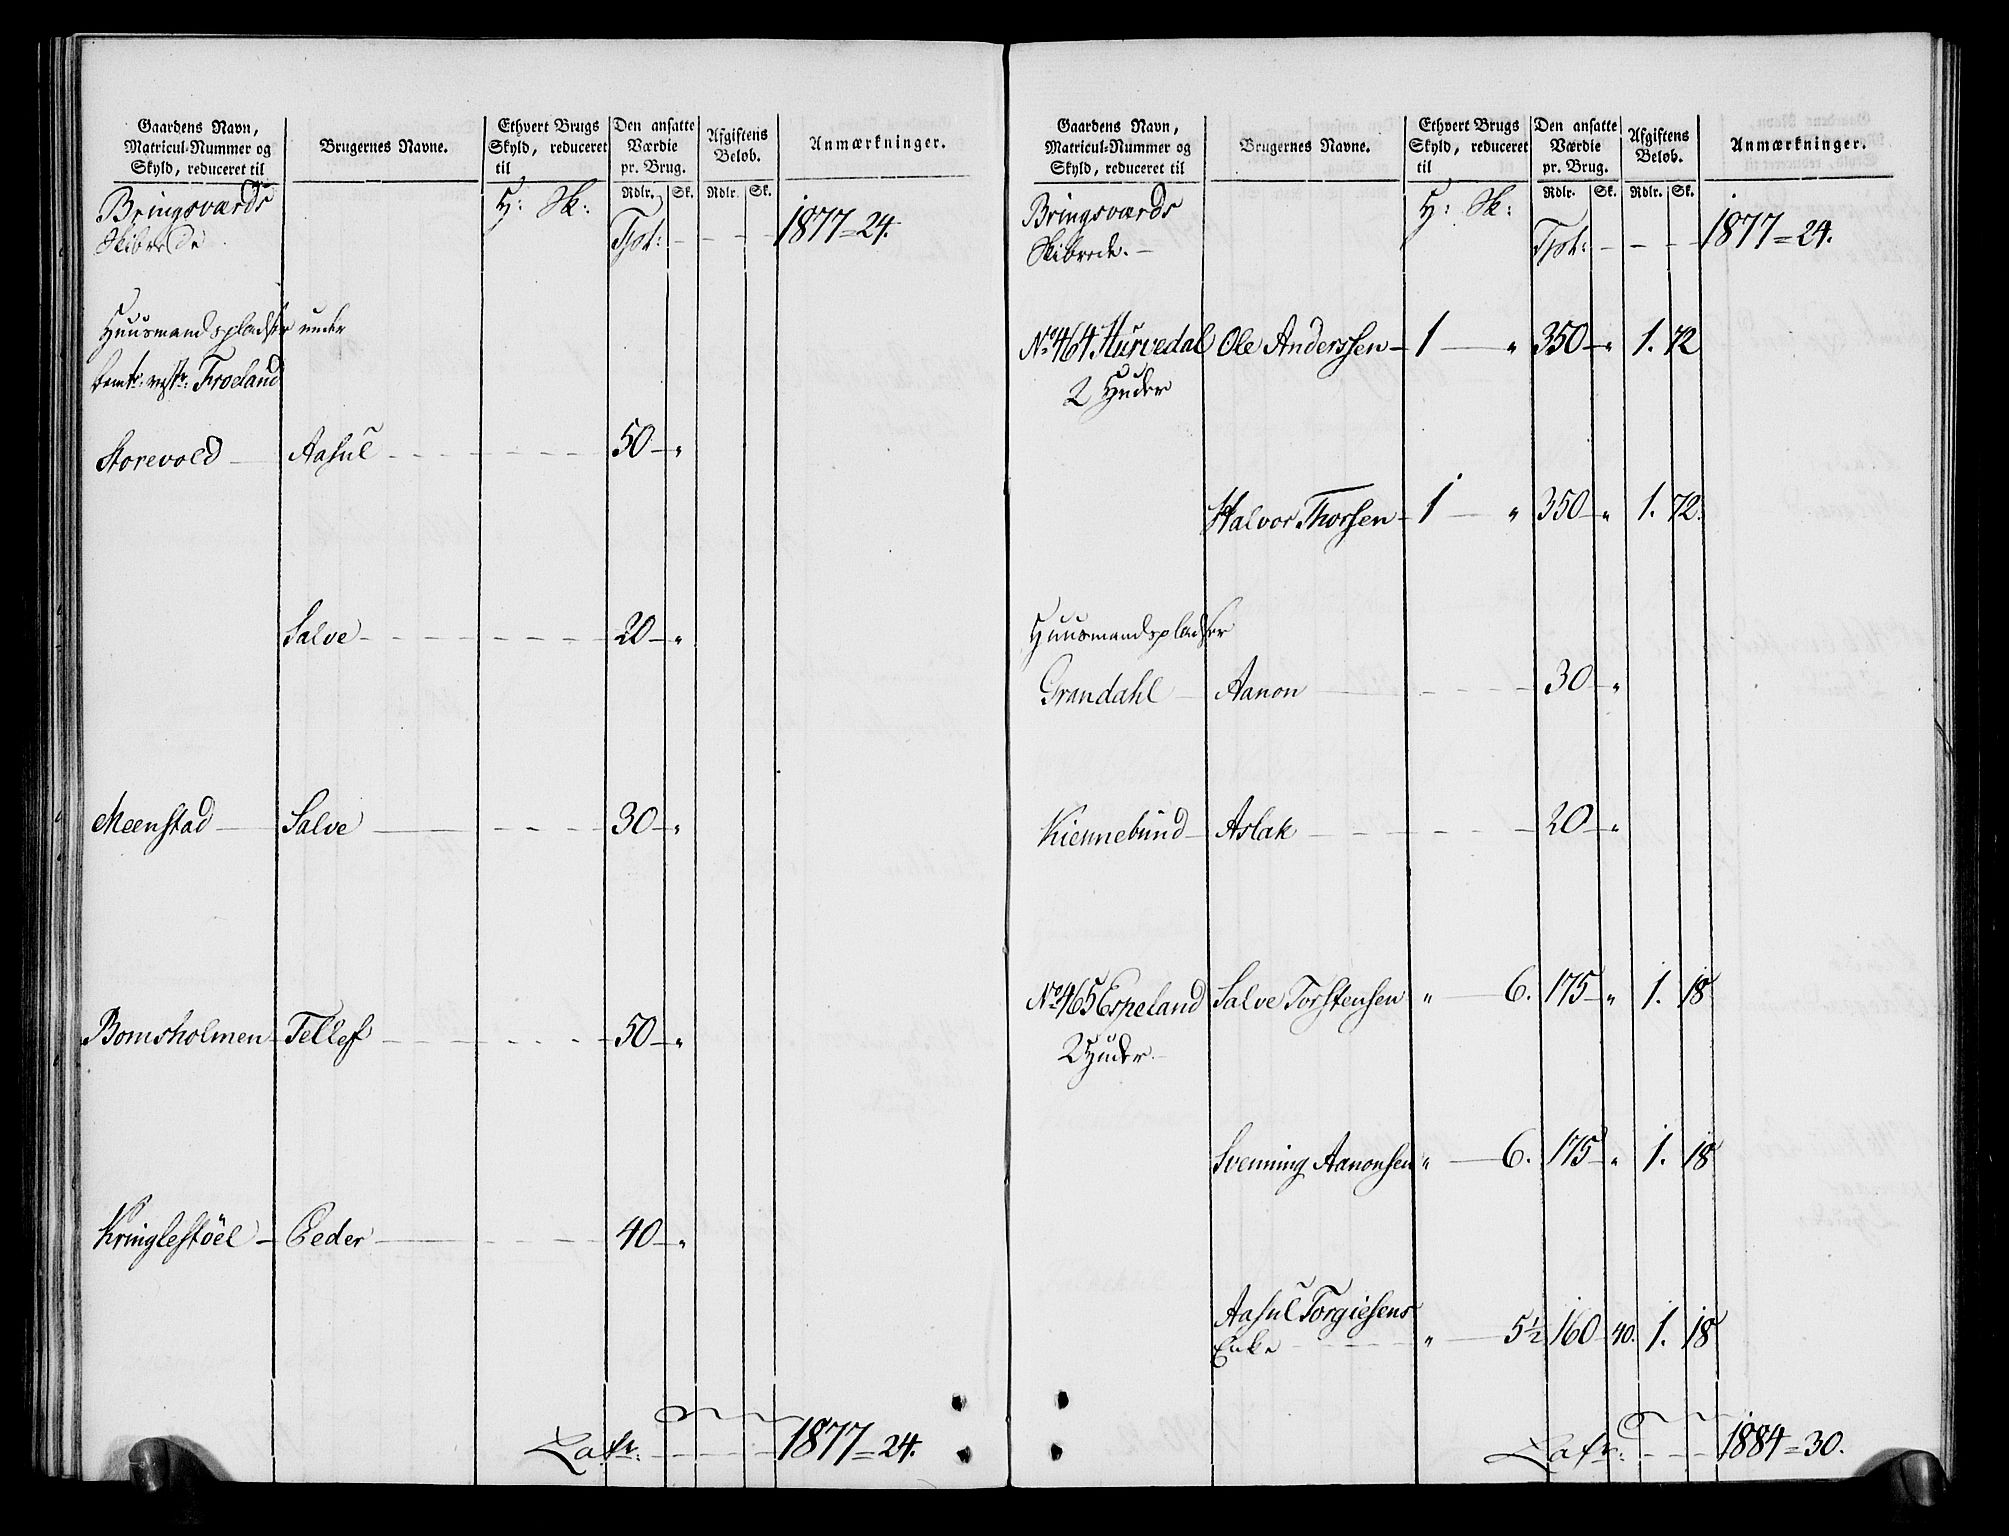 Gaardens Navn, Matricul-Nummer og Skyld, reduceret til | Brugernes Navne. | Ethvert Brugs Skyld, reduceret til | Den ansatte Værdie pr. Brug. | Afgiftens Belob. | Anmærkninger.
Rdlr. Sk. Rdlr. Sk.
Bringsværds H: Sk:
Skibrede Tpt: 1877 = 24.
Huusmandspladser under
Froeland
Storevold Aasul 50 "
Salve 20 "
Meenstad Salve 30 "
Bomsholmen Tellef 50 "
Kringlestöel Peder 40 "
Latr: 1877 = 24.
Gaardens Navn, Matricul-Nummer og Skyld, reduceret til | Brugernes Navne. | Ethvert Brugs Skyld, reduceret til | Den ansatte Værdie pr. Brug. | Afgiftens Belob. | Anmærkninger.
Rdlr. Sk. Rdlr. Sk.
Bringsværds H: Sk:
Skibrede. Tpt: 1877 = 24.
No 464 Hurvedal Ole Anderssen 1 " 350 " 1. 72
2 Huder
Halvor Thorsen 1 " 350 " 1. 72.
Huusmandspladser
Grandahl Aanon 30 "
Kiennebund Aslak 20 "
No 465 Espeland Salve Torstensen " 6. 175 " 1. 18
2 Huder.
Svenning Aanonsen " 6. 175 " 1. 18
Aasul Torgiesens
Enke " 5½ 160 40. 1. 18
Latr: 1884 = 30.